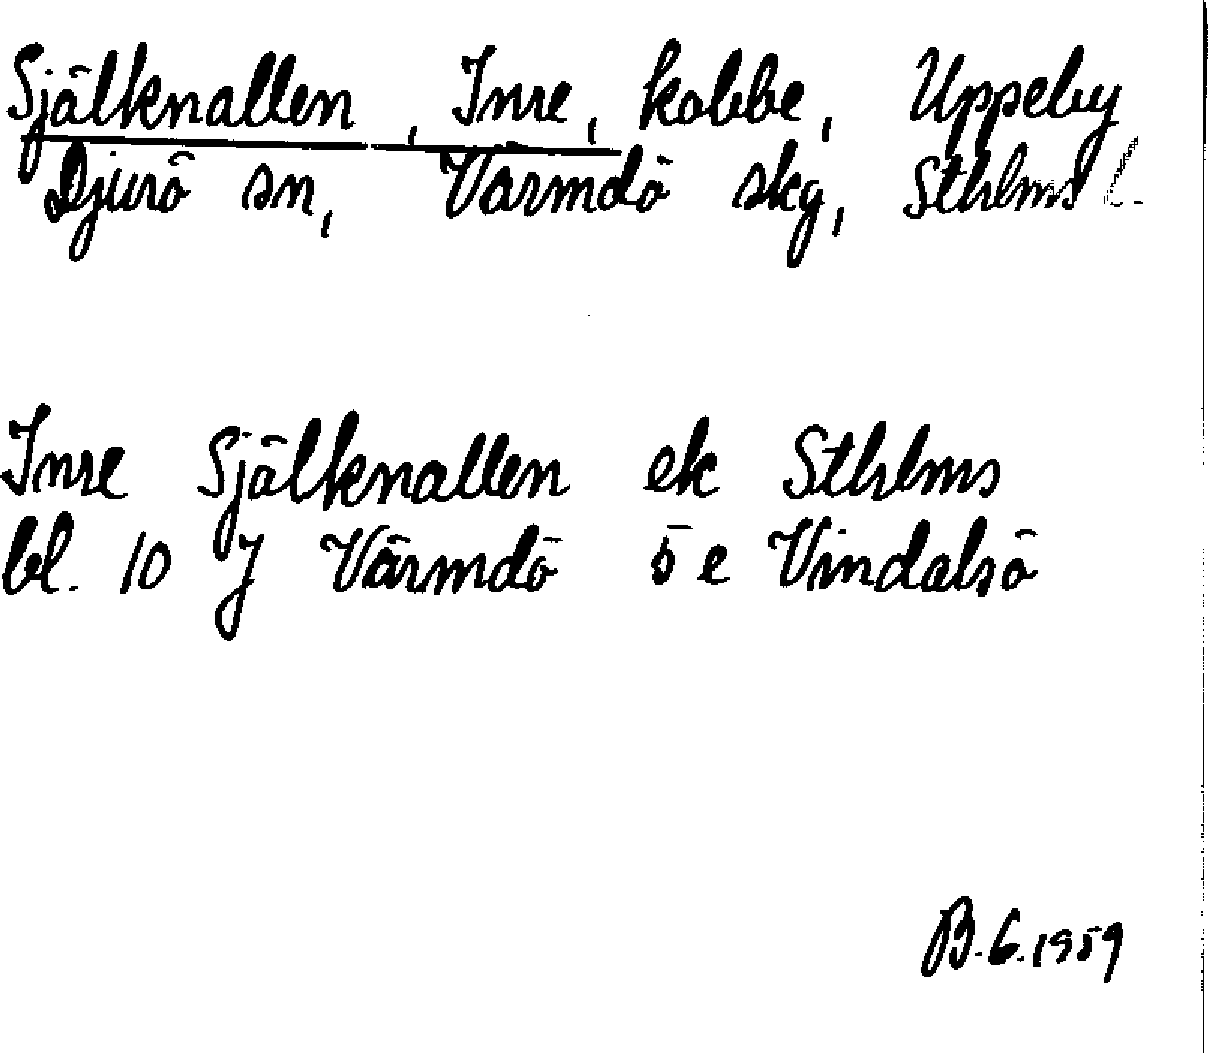 Själknallen, Inre, kobbe, Uppeby
Djurö sn, Värmdö skg, Sthlms l.
Inre Själknallen ek Sthlms
bl. 10 J Värmdö ö e Vindalsö
B.G.1959